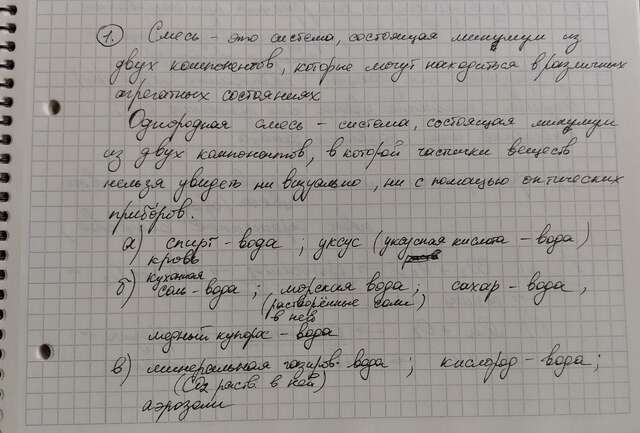 1. Смесь - это система, состоящая минимум из
двух компонентов, которые могут находиться в различных
агрегатных состояниях
Однородная смесь - система, состоящая минимум
из двух компонентов, в которой частички веществ
нельзя увидеть ни визуально, ни с помощью оптических
приборов.
а) спирт - вода ; уксус (уксусная кислота - вода)
кровь
кухонная
б) соль - вода ; морская вода ; сахар - вода,
(растворённые соли)
в ней
медный купорос - вода
в) минеральная газиров. вода ; кислород - вода;
(CO2 раств. в ней)
аэрозоли